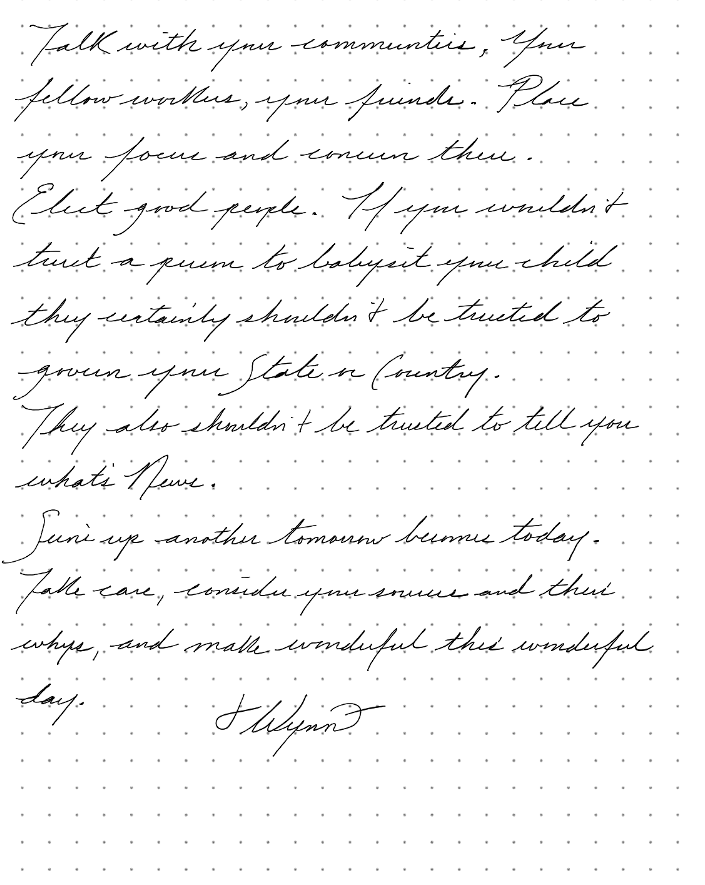 Talk with your communties, Your
fellow workers, your friends. Place
your focus and concern there.
Elect good people. If you wouldn't
trust a person to babysit your child
they certainly shouldn't be trusted to
govern your State or Country.
They also shouldn't be trusted to tell you
what's News.
Sun's up another tomorrow becomes today.
Take care, consider your sources and their
whys, and make wonderful this wonderful
day.
Wynn